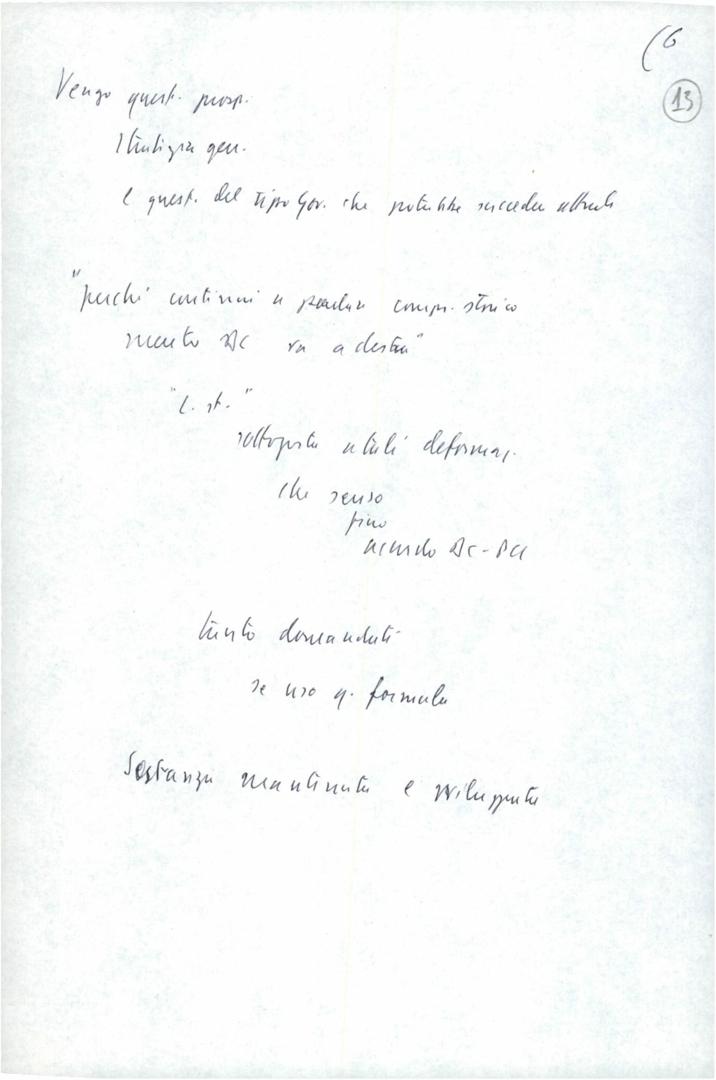 (6
13
Vengo quest. prosp.
Strategia gen.
e quest. del tipo Gov. che potrebbe succedere attuale
"perché continui a parlare comp. storico
mentre DC va a destra"
"C. st."
sottoposta a tali deformaz.
che senso
fino
accordo DC-PCI
tanto domandati
se uso q. formula
Sostanza mantenuta e sviluppata